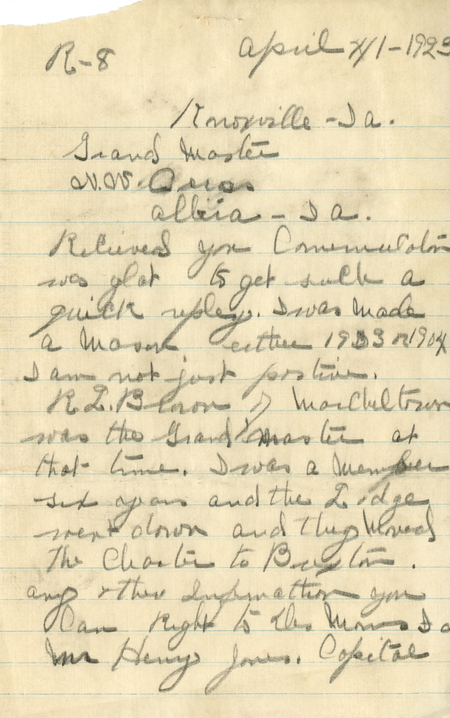 R-8 April 1-1923
Knoxville - Ia.
Grand Master
Albia - Ia.
Relieved you Commucation
was glat to get such a
quick repley. I was made
a Mason eather 1933 or 1904
I am not just postive.
R.L. Brown of Marcheltown
was the Grand Master at
that time. I was a Member
six years and the Lodge
went down and they Moved
the Charter to Buxton.
any other Infermation you
Can Right to Des Moines Ia
Mr Henry Jones. Capital